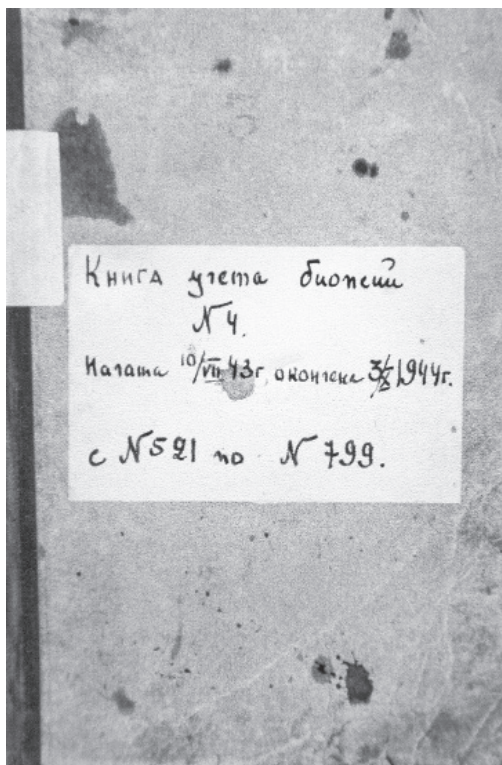 Книга учета биопсий
№ 4.
Начата 10/VII 43г. окончена 1944г.
с № 521 по № 799.